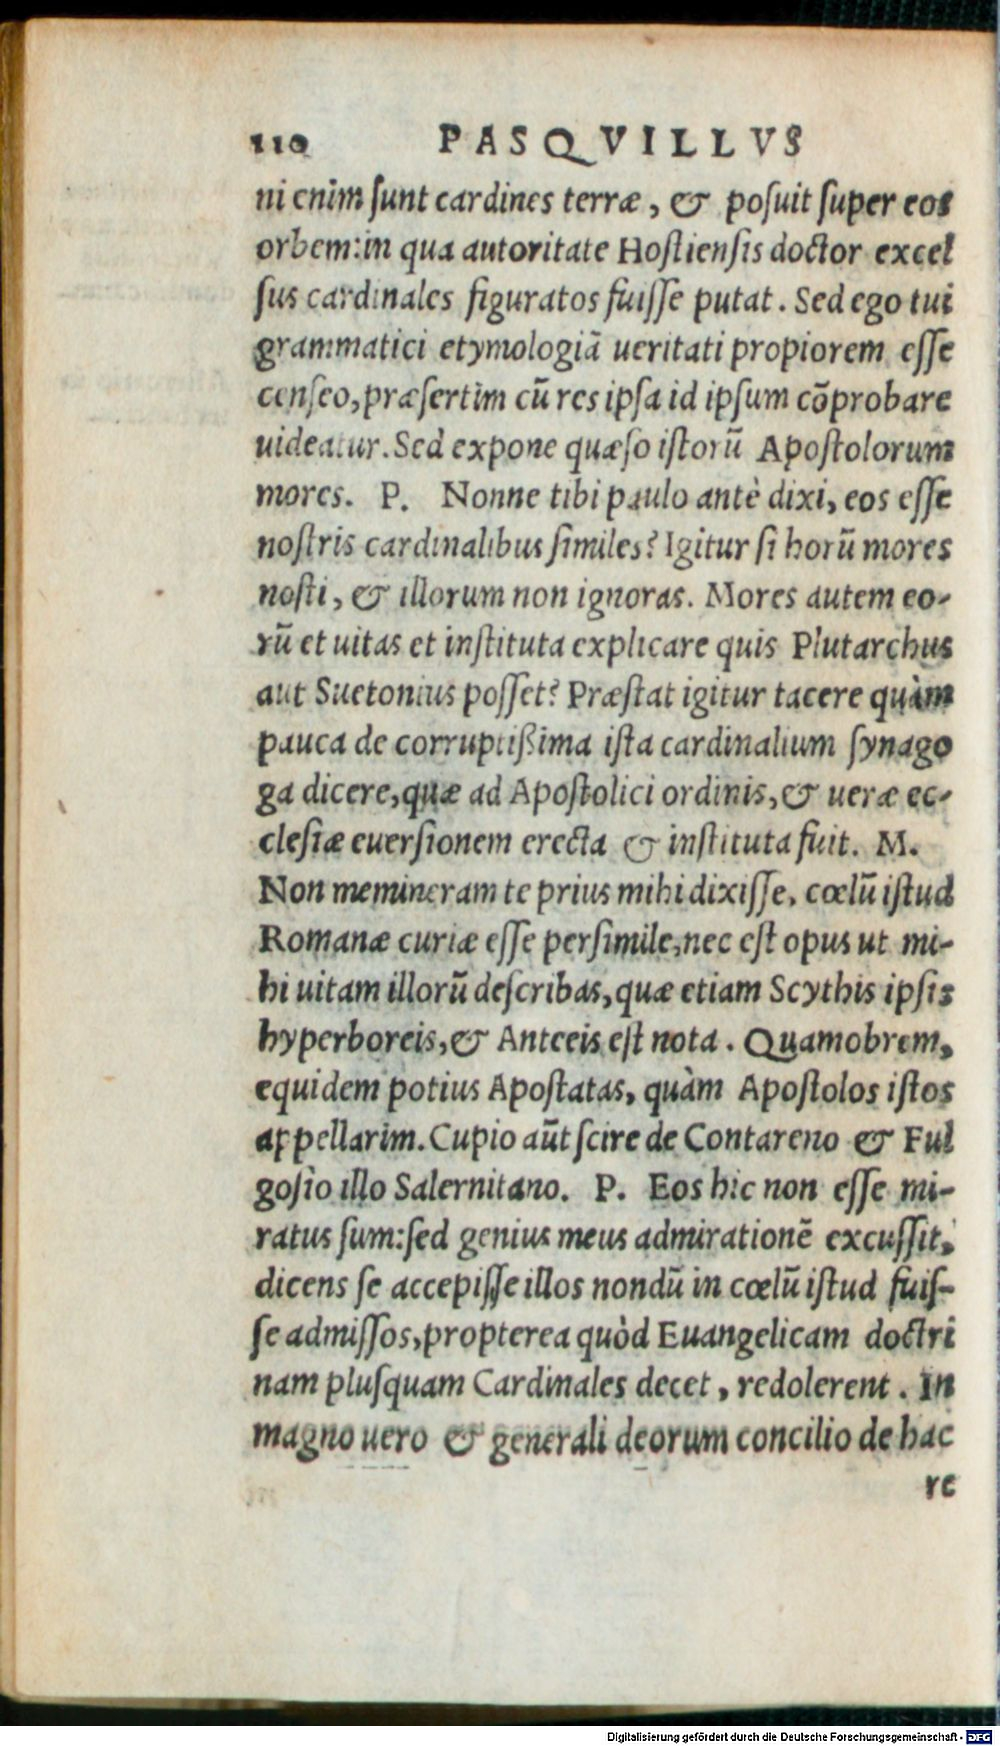 110 PASQVILLVS
ni enim ſunt cardines terræ, & poſuit ſuper eos
orbem: in qua autoritate Hoſtienſis doctor excel
ſus cardinales figuratos fuiſſe putat. Sed ego tui
grammatici etymologiã ueritati propiorem eſſe
cenſeo, præſertim cũ res ipſa id ipſum cõprobare
uideatur. Sed expone quæſo iſtorũ Apoſtolorum
mores. P. Nonne tibi paulo antè dixi, eos eſſe
noſtris cardinalibus ſimiles? Igitur ſi horũ mores
noſti, & illorum non ignoras. Mores autem eo-
rũ et uitas et inſtituta explicare quis Plutarchus
aut Suetonius poſſet? Præſtat igitur tacere quàm
pauca de corruptißima iſta cardinalium ſynago
ga dicere, quæ ad Apoſtolici ordinis, & ueræ ec-
cleſiæ euerſionem erecta & inſtituta fuit. M.
Non memineram te prius mihi dixiſſe, cœlũ iſtud
Romanæ curiæ eſſe perſimile, nec eſt opus ut mi-
hi uitam illorũ deſcribas, quæ etiam Scythis ipſis
hyperboreis, & Antœcis eſt nota. Quamobrem,
equidem potius Apoſtatas, quàm Apoſtolos iſtos
appellarim. Cupio aũt ſcire de Contareno & Ful
goſio illo Salernitano. P. Eos hic non eſſe mi-
ratus ſum: ſed genius meus admirationẽ excuſſit,
dicens ſe accepiſſe illos nondũ in cœlũ iſtud fuiſ-
ſe admiſſos, propterea quòd Euangelicam doctri
nam pluſquam Cardinales decet, redolerent. In
magno uero & generali deorum concilio de hac
re
Digitalisierung gefördert durch die Deutsche Forschungsgemeinschaft - DFG